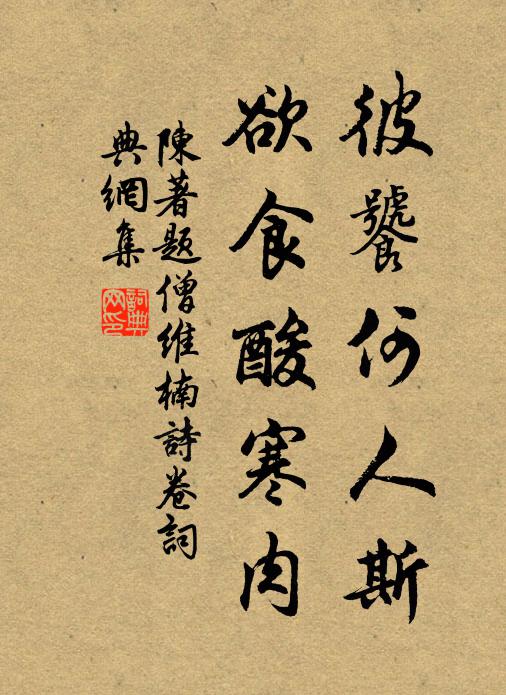 彼饕何人斯
欲食酸寒肉
陳著題僧維楠詩卷詞
典網集
詞典網印